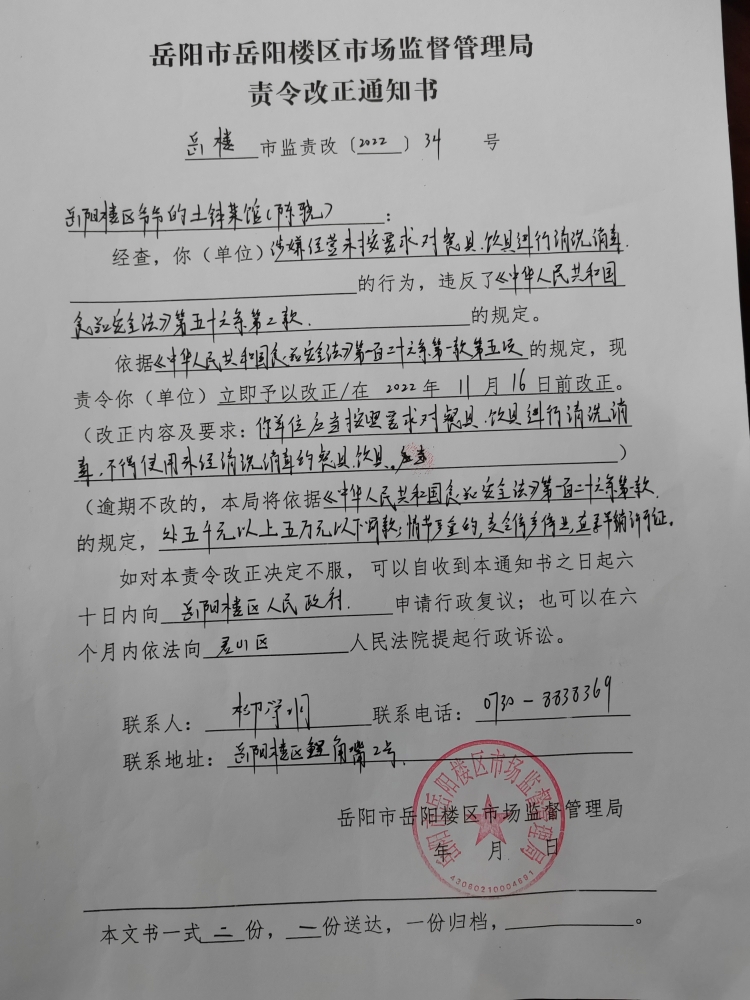 岳阳市岳阳楼区市场监督管理局
责令改正通知书
岳楼 市监责改〔2022〕34 号
岳阳楼区爷爷的土钵菜馆(陈	):
经查，你（单位）涉嫌经营未按要求对餐具、饮具进行清洗消毒
的行为，违反了《中华人民共和国
食品安全法》第五十六条第二款 的规定。
依据《中华人民共和国食品安全法》第一百二十六条第一款第五项 的规定，现
责令你（单位）立即予以改正/在 2022 年 11 月 16 日前改正。
（改正内容及要求：你单位应当按照要求对餐具、饮具进行清洗消
毒，不得使用未经清洗消毒的餐具、饮具。）
（逾期不改的，本局将依据《中华人民共和国食品安全法》第一百二十六条第一款
的规定，处五千元以上五万元以下罚款；情节严重的，责令停产停业，直至吊销许可证。
如对本责令改正决定不服，可以自收到本通知书之日起六
十日内向 岳阳楼区人民政府 申请行政复议；也可以在六
个月内依法向 君山区 人民法院提起行政诉讼。
联系人：柳 联系电话：0730-8838369
联系地址：岳阳楼区鲤角嘴2号
岳阳市岳阳楼区市场监督管理局
年 月 日
岳阳市岳阳楼区市场监督管理局
43060210004691
本文书一式 二 份，一 份送达，一份归档， 。